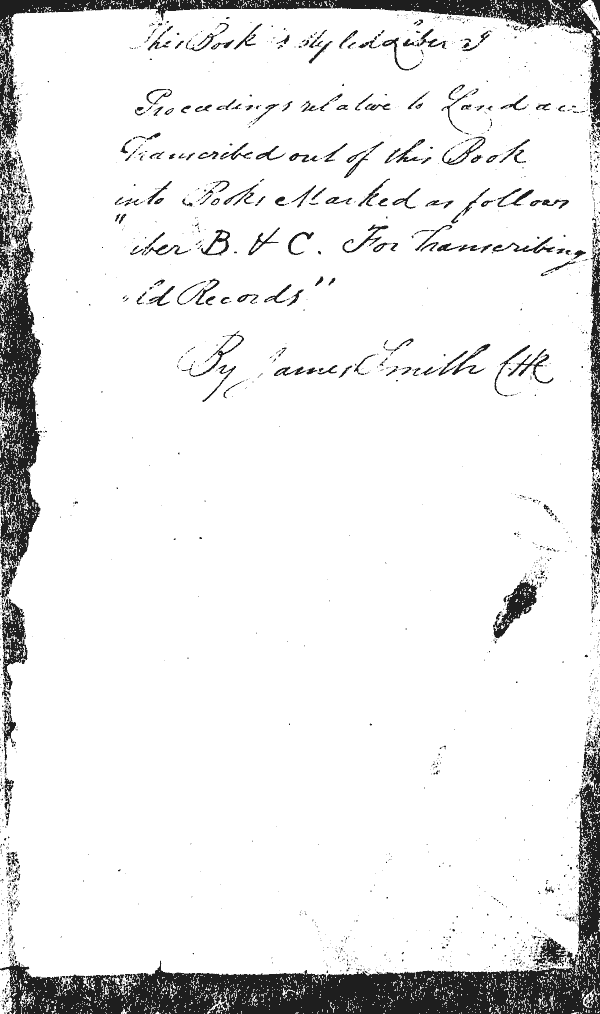 This Book is styled Liber
Proceedings relative to Land are
Transcribed out of this Book
into Books Marked as follows
"iber B. & C. For Transcribing
ld Records"
By James Smith Clk